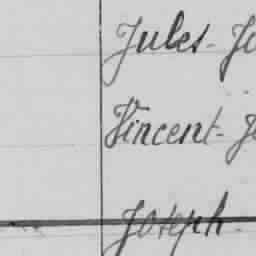 Jules-Jo
Vincent-J
Joseph-